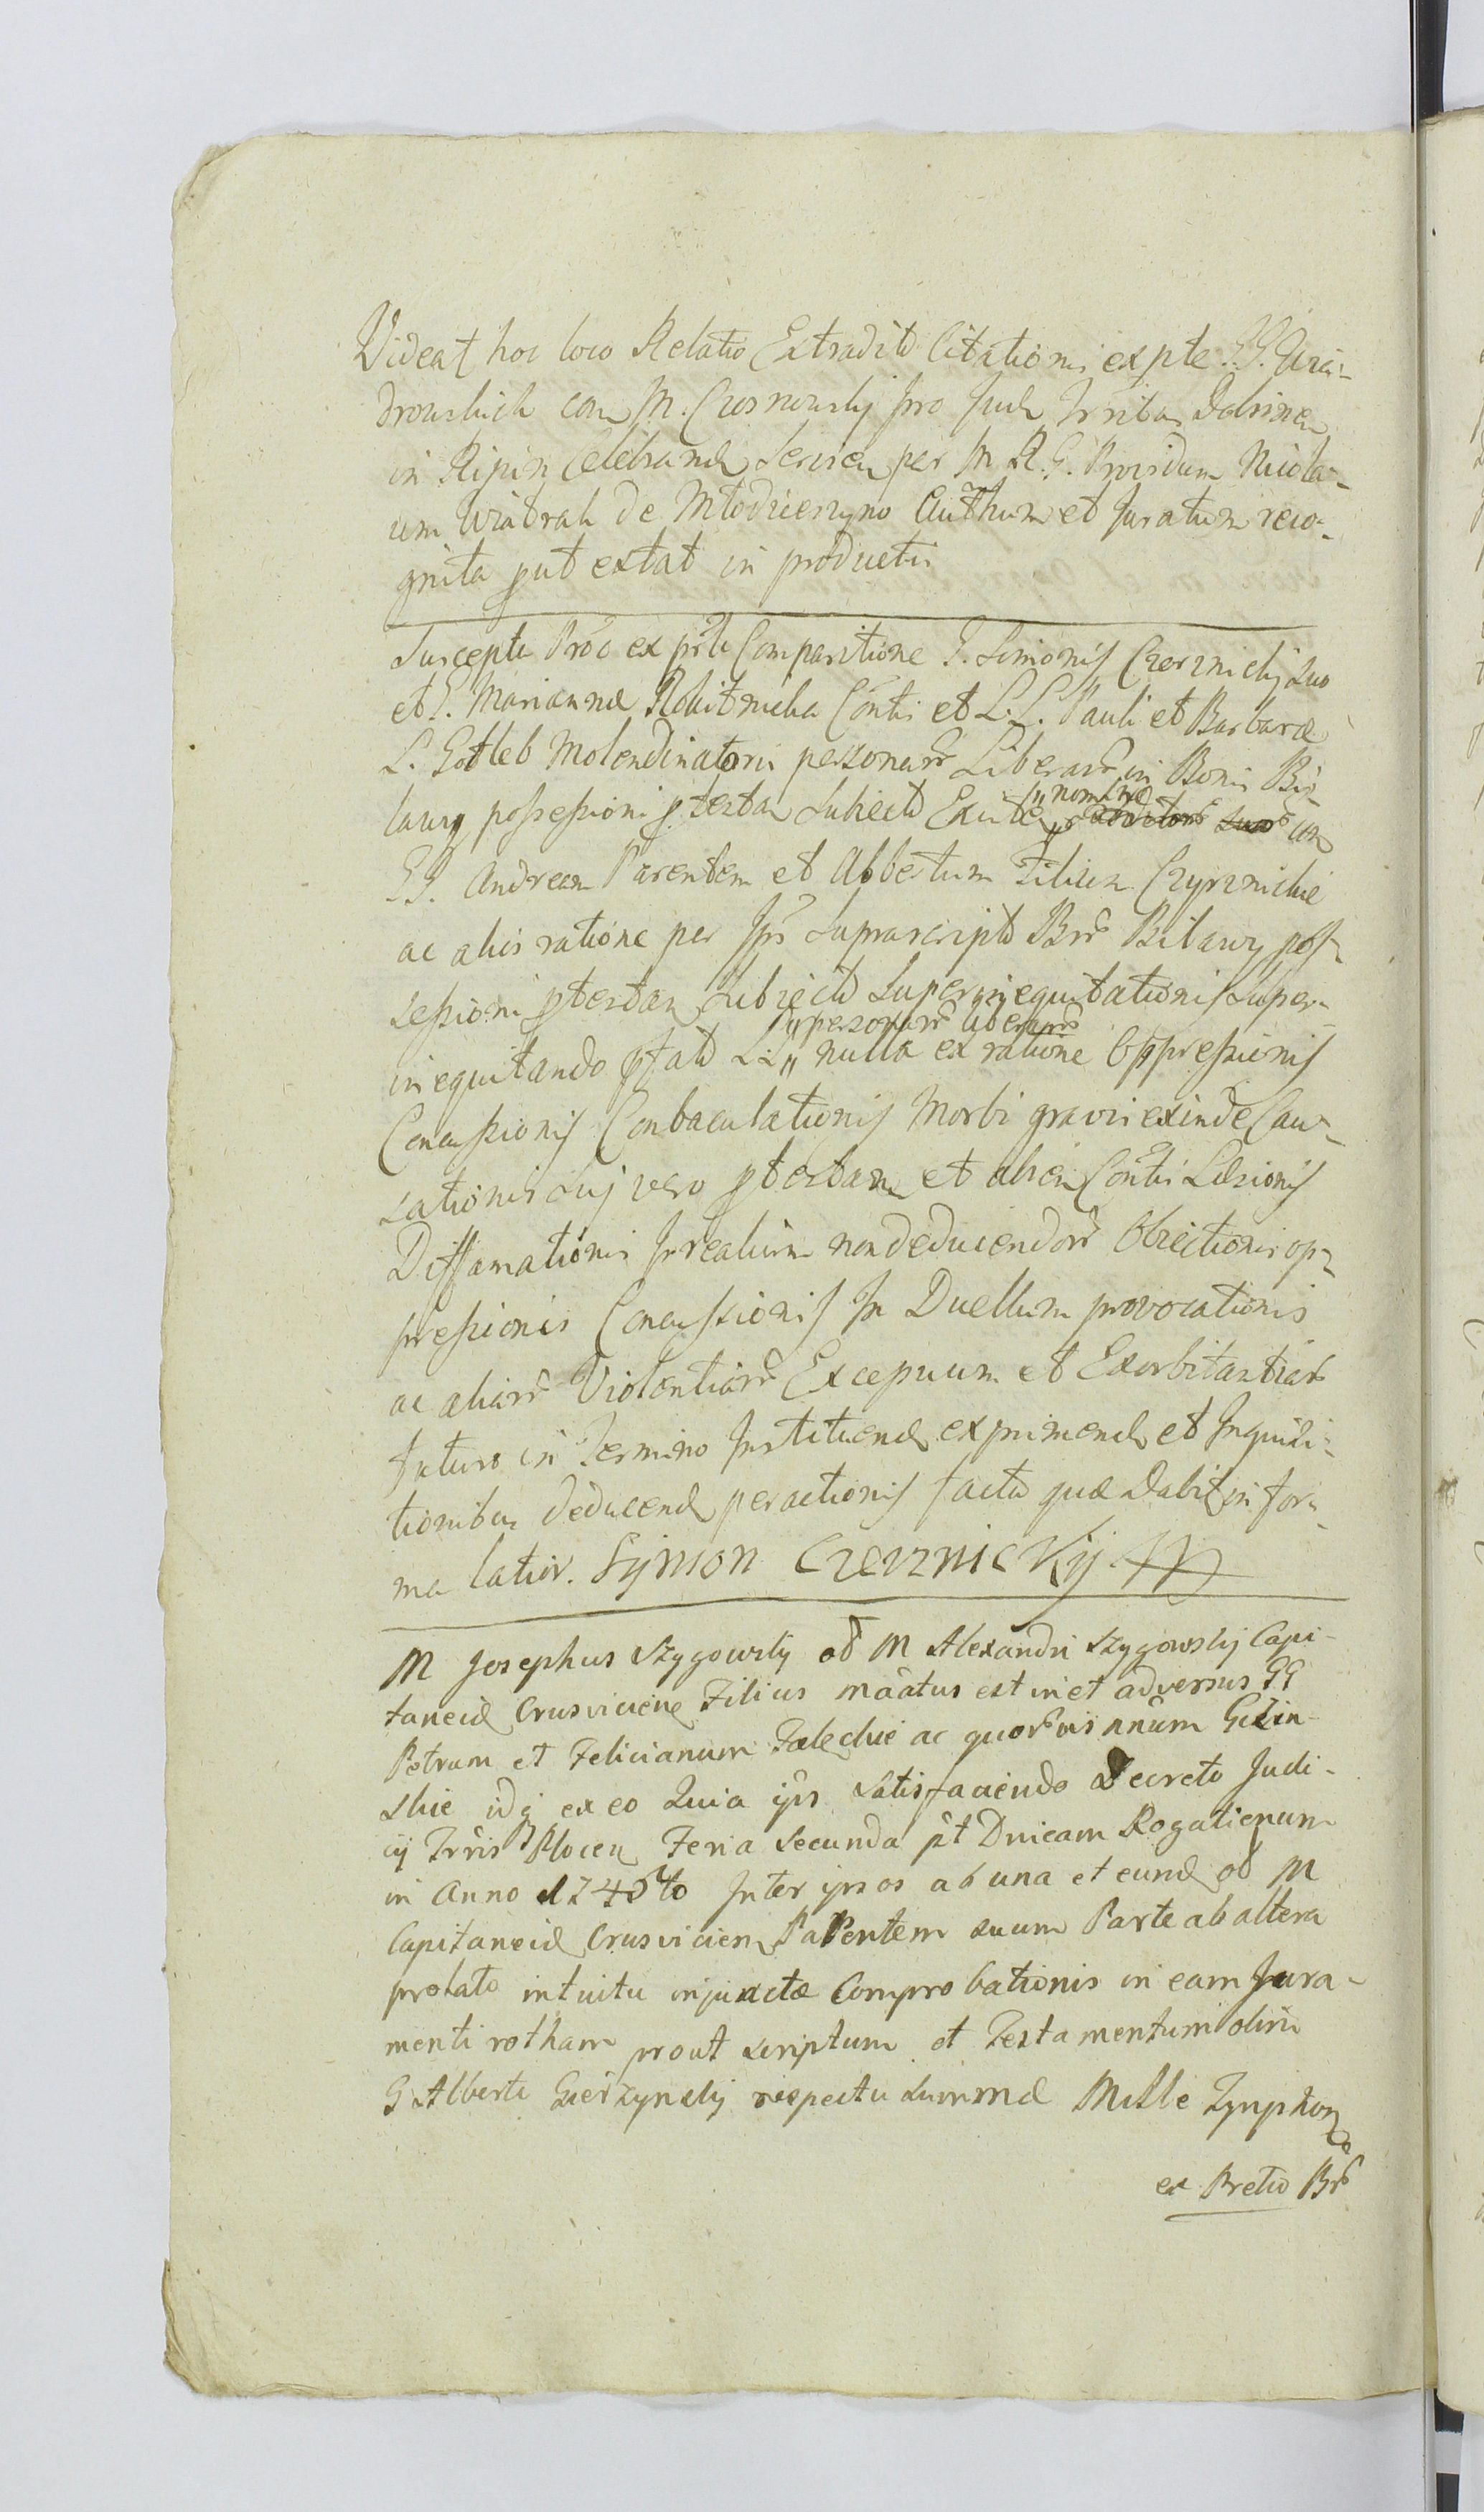 Videat hoc loco Relatio Extradito Citationis ex pte GG. Uzię-
drowskich con M. Czosnowskj pro Jud Trribus Dobrinen
in Ripin Celebrand Servien per M R. G. Providum Nicola-
um Wiatrak de Młodzieszyno Authum et Juratum reco-
gnita put extat in productis
Suscepta Proc ex pte Comparitione G. Simonis Czerznickj suo
et G. Mariannæ Rokitnicka Contis et L. L. Pauli et Barbaræ
L. Gotleb Molendinatoris personarr Liberarr in Bonis Bi-
lawy possessioni ptestan Subiecto " nomine
GG. Andream Parentem et Albertum Filium Czyrznickie
ac alios ratione per Jps Suprascripto Brr Bilawy pos-
sessioni ptestan Subiecto Superinequitationis Super-
inequitando pfato LL " personarr liberarr " nulla ex ratione Oppressionis
Concussionis Conbaculationis Morbi gravis exinde Cau-
sationis Suj vero ptestan et alien Contis Læsionis
Diffamationis In realium non deducendorr Obiectionis op-
pressionis Concussionis In Duellum provocationis
ac aliarr Violentiarr Excepuum et Exorbitantiarr
futuro in Termino Instituend exprimend et Inquisi-
tionibus deducend peractionis facta quæ Dabit in for-
ma latior. Symon Czerznickij
M Josephus Szygowsky od M Alexandri Szygowskj Capi-
taneid Crusvicien Filius maatus est in et adversus GG
Petrum et Felicianum Fæleckie ac quorvis nnum Gizin-
skie idq ex eo Quia ips Satisfaciendo Decreto Judi-
cij Trris Plocen Feria Secunda pt Dnicam Rogationum
in Anno 1740to Inter ipsos ab una et eund od M
Capitaneid Crusvicien Parentem suum Parte ab altera
prolato intuitu injunctæ Comprobationis in eam Jura-
menti rotham prout scriptum et Testamentum olim
G Alberti respectu summæ Mille Tynphon
ex Pretio Brr